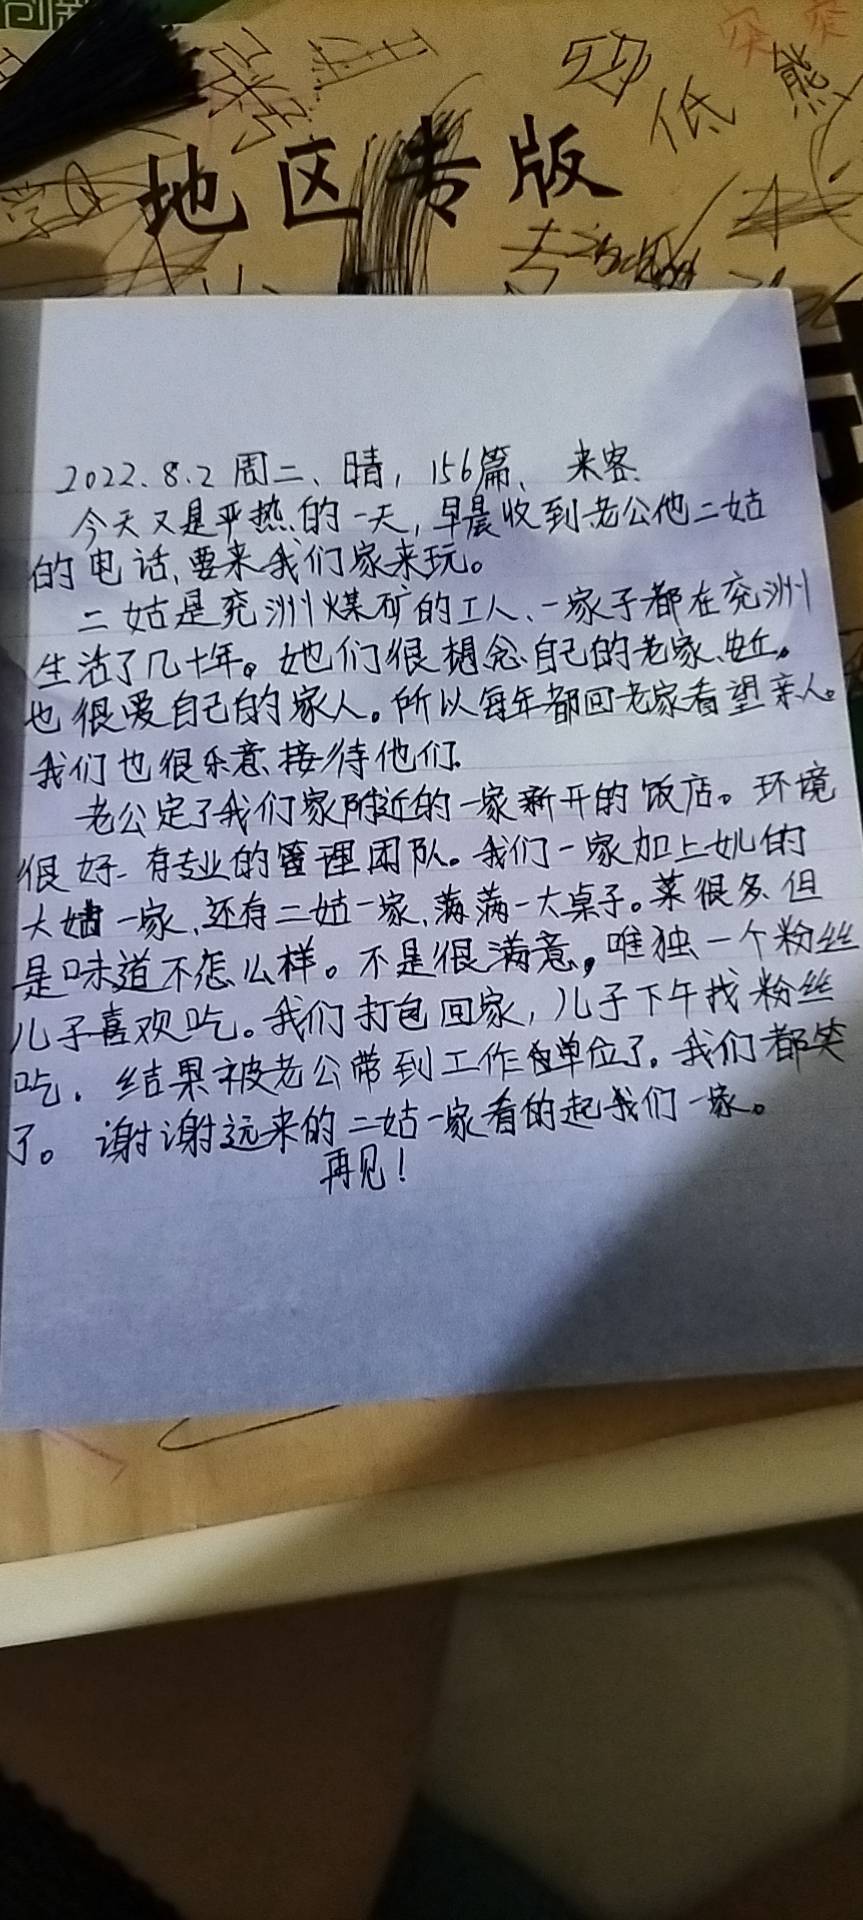 创新
低 熊
地区专版
学习
2022.8.2 周二、晴，156篇、 来客.
今天又是平热的一天，早晨收到老公他二姑
的电话、要来我们家来玩。
二姑是兖洲煤矿的工人、一家子都在兖洲
生活了几十年。她们很想念自己的老家、安丘。
也很爱自己的家人。所以每年都回老家看望亲人。
我们也很乐意接待他们.
老公定了我们家附近的一家新开的饭店。环境
很好、有专业的管理团队。我们一家加上她的
大姑一家、还有二姑一家、满满一大桌子。菜很多、但
是味道不怎么样。不是很满意，唯独一个粉丝
儿子喜欢吃。我们打包回家，儿子下午找粉丝
吃. 结果被老公带到工作单位了. 我们都笑
了。谢谢远来的二姑一家看的起我们一家。
再见！